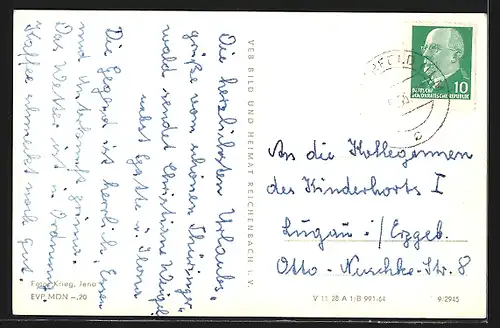 Die herzlichsten Urlaubs-
grüße vom schönen Thüringer-
wald sendet Christine Weigel
nebst Gatte u.
Die Gegend ist herrlich, Essen
und Unterkunft prima.
Das Wetter ist in Ordnung.
Kaffee schmeckt noch gut.
Foto: Krieg, Jena
EVP MDN -,20
VEB BILD UND HEIMAT REICHENBACH I. V.
10
DEUTSCHE
DEMOKRATISCHE REPUBLIK
An die Kolleginnen
des Kinderhorts I
Lugau i/Erzgeb.
Otto-Nuschke-Str. 8
V 11 28 A 1/B 991-64
9/2945